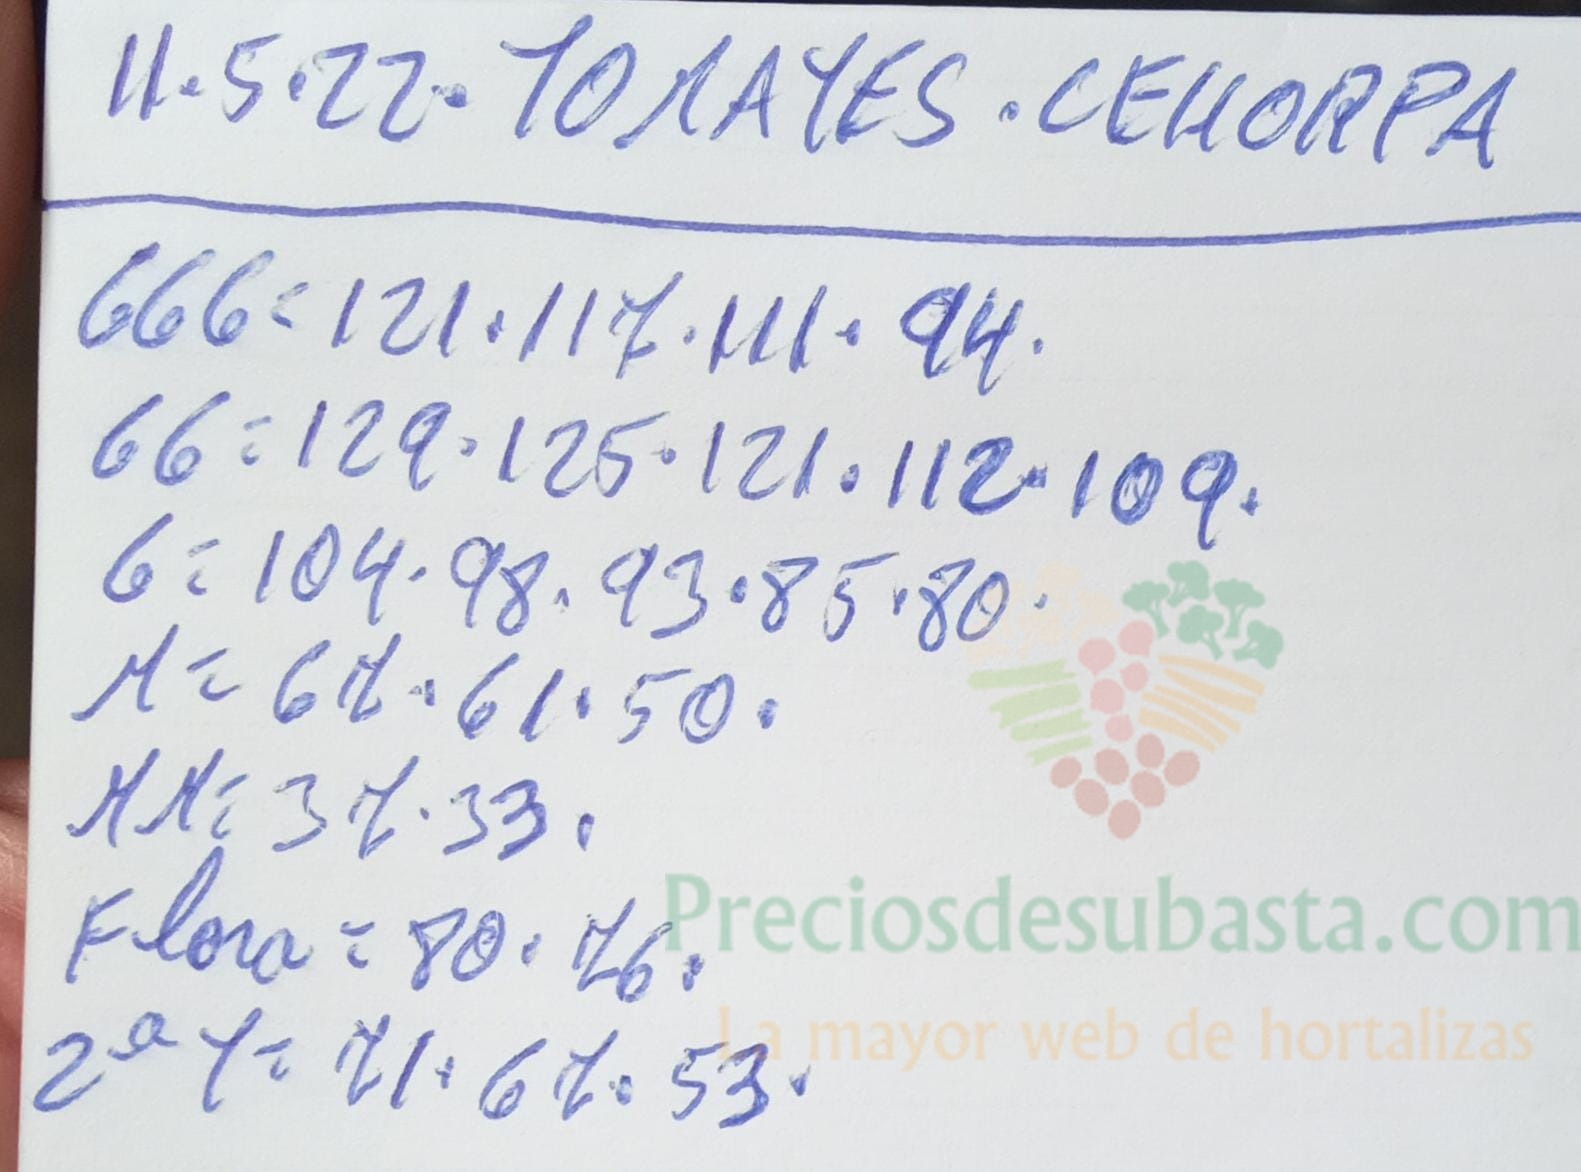 11.5.22. TOMATES. CEHORPA
GGG= 121. 117. 111. 94.
GG= 129. 125. 121. 112. 109.
G= 104. 98. 93. 85. 80.
M= 67. 61. 50.
MM= 37. 33.
Flora = 80. 76.
2ª T= 71. 67. 53.
Preciosdesubasta.com
La mayor web de hortalizas